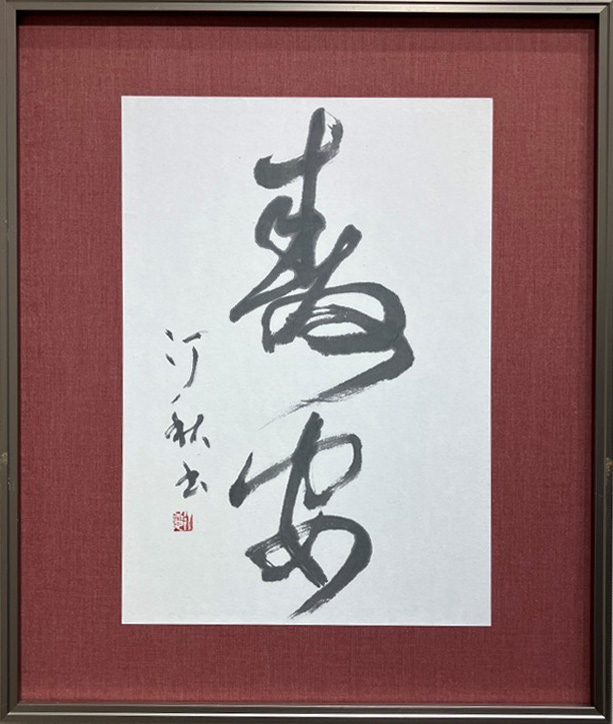 寿安
汀秋书